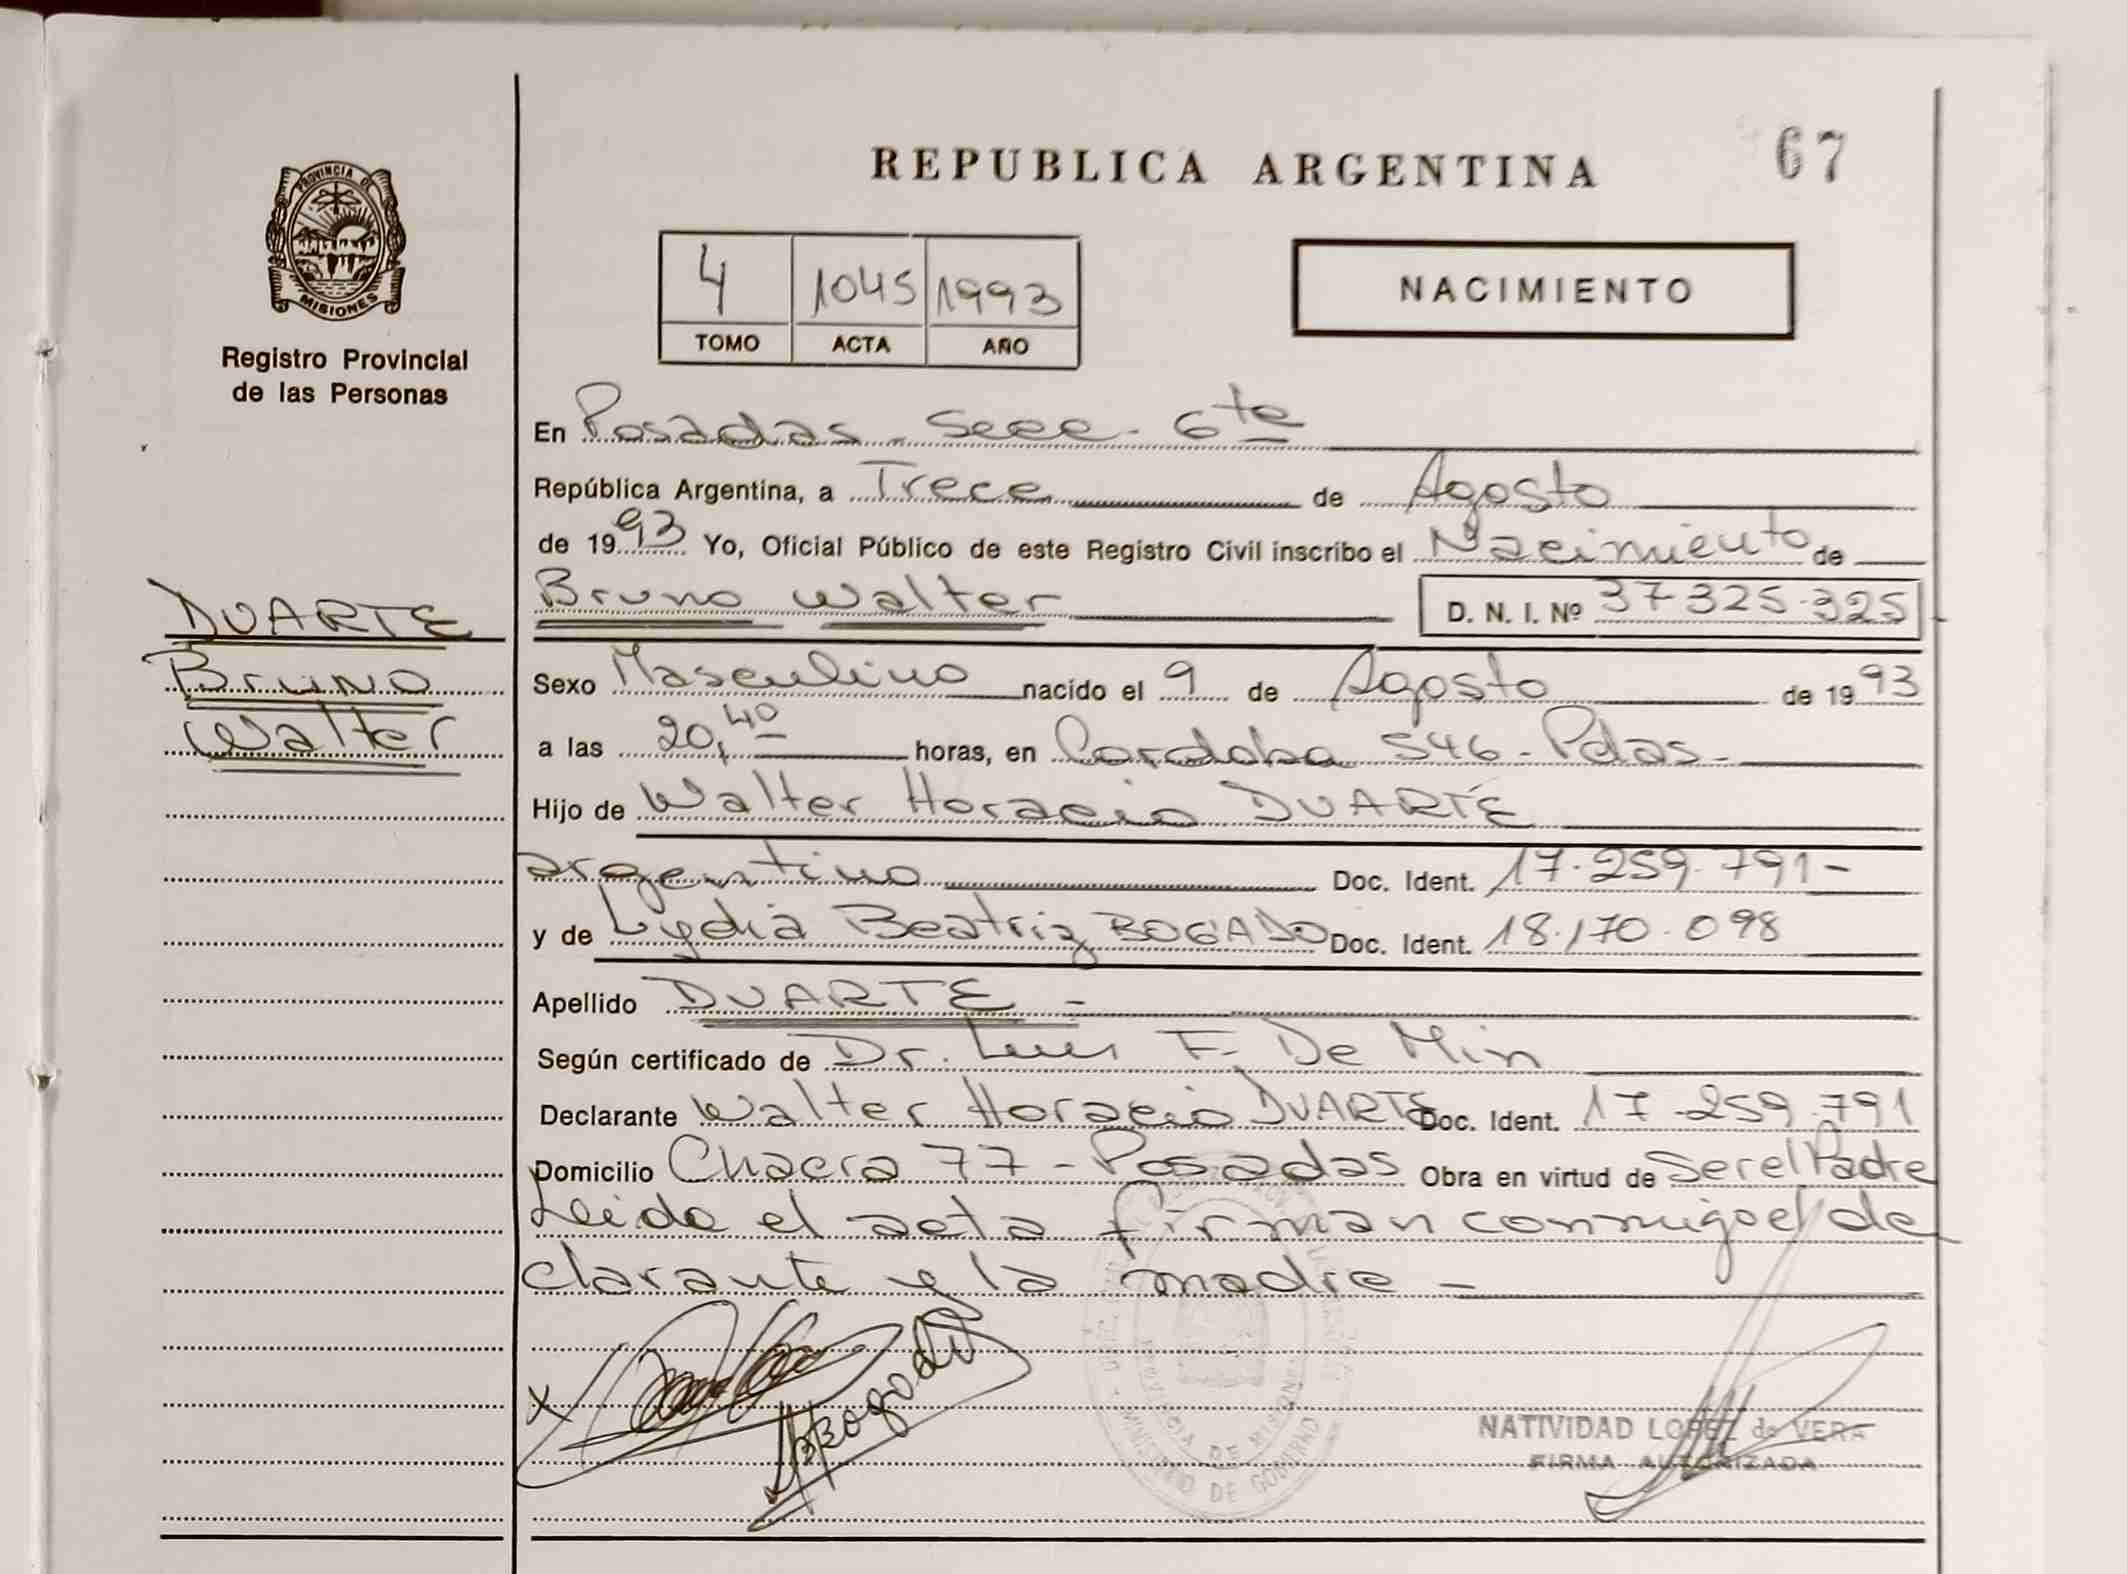 67
REPUBLICA ARGENTINA
PROVINCIA DE
MISIONES
Registro Provincial
de las Personas
4 1045 1993
TOMO ACTA AÑO
NACIMIENTO
En Posadas - Secc - 6ta
República Argentina, a Trece de Agosto
de 1993 Yo, Oficial Público de este Registro Civil inscribo el Nacimiento de
Bruno Walter D. N. I. Nº 37325.325
DUARTE
Bruno
Walter
Sexo Masculino nacido el 9 de Agosto de 1993
a las 20,40 horas, en Cordoba 546 - Pdas -
Hijo de Walter Horacio DUARTE
argentino Doc. Ident. 17.259.791-
y de Lydia Beatriz BOGADO Doc. Ident. 18.170.098
Apellido DUARTE -
Según certificado de Dr. Luis F. De Min
Declarante Walter Horacio DUARTE Doc. Ident. 17.259.791
Domicilio Chacra 77 - Posadas Obra en virtud de Ser el Padre
Leida el acta firman conmigo el de
clarante y la madre -
x
PROVINCIA DE MISIONES
MINISTERIO DE GOBIERNO
NATIVIDAD LOPEZ de VERA
FIRMA AUTORIZADA